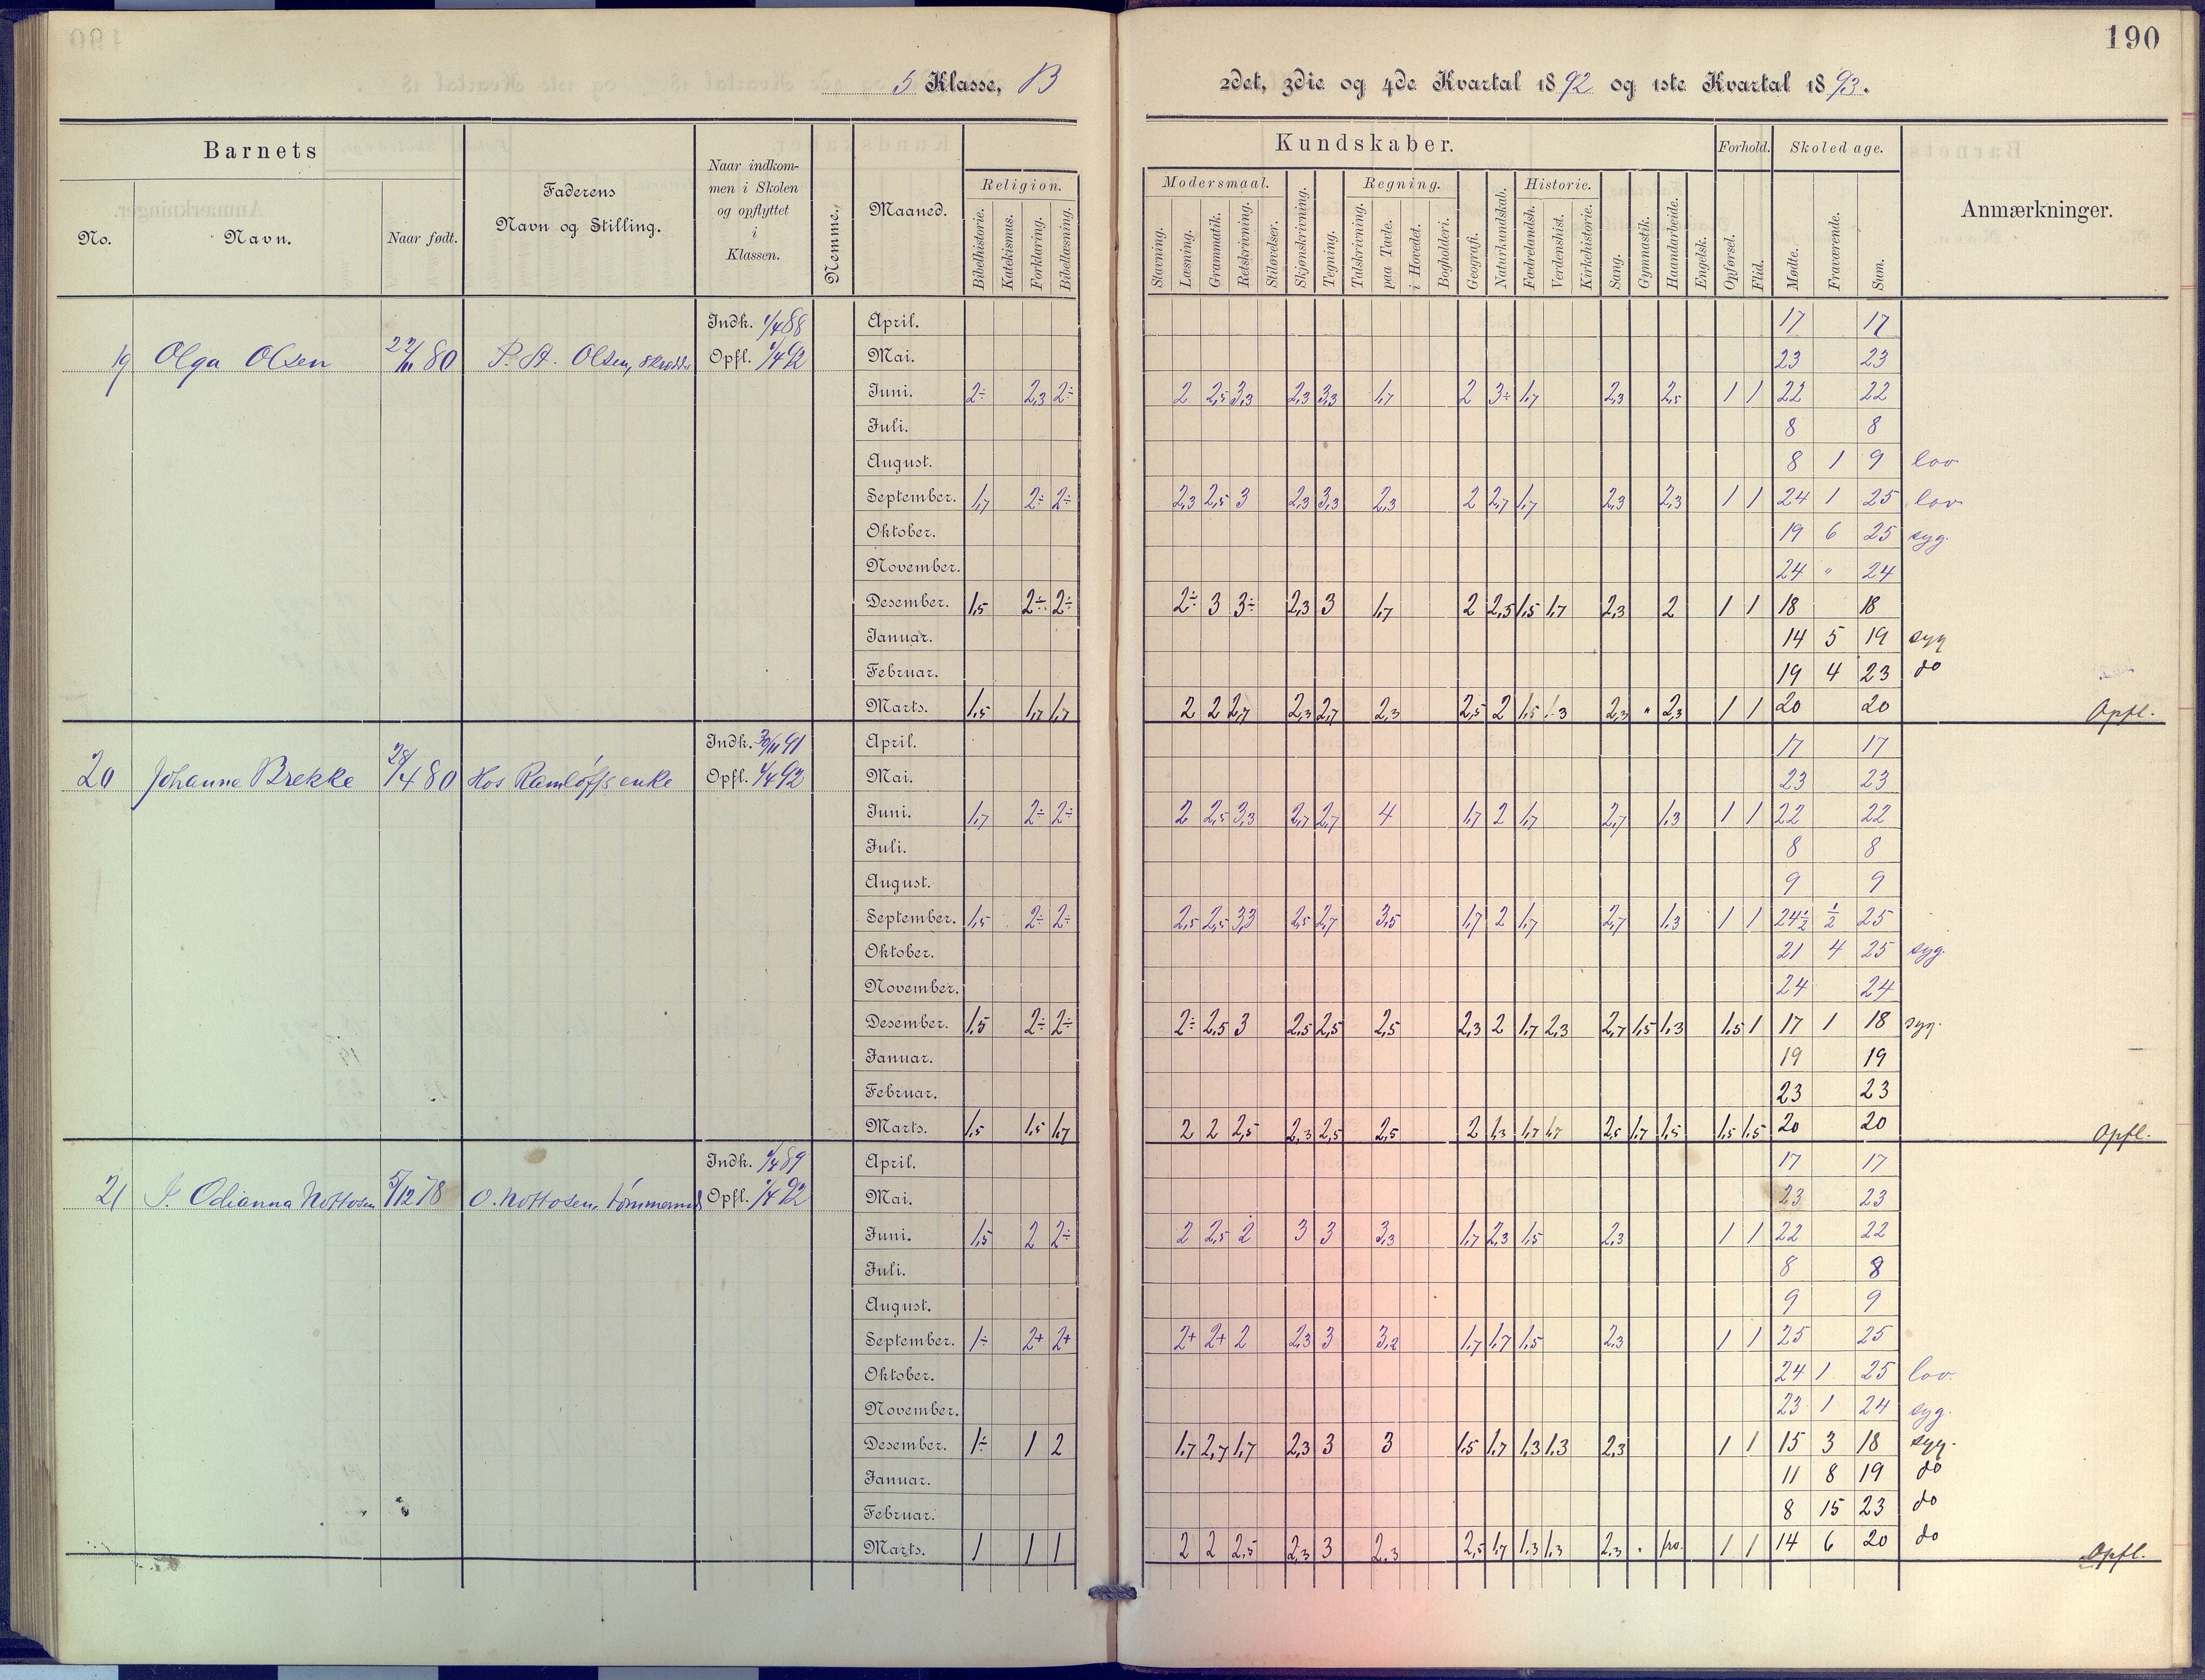 190
5 Klasse, B 2det, 3die og 4de Kvartal 1892 og 1ste Kvartal 1893.
Barnets Faderens Navn og Stilling. Naar indkommen i Skolen og opflyttet i Klassen. Nemme. Maaned. Kundskaber. Forhold. Skoledage. Anmærkninger.
No. Navn. Naar født. Religion. Modersmaal. Skjønskrivning. Tegning. Regning. Geografi. Naturkundskab. Historie. Sang. Gymnastik. Haandarbeide. Engelsk. Opførsel. Flid. Mødte. Fraværende. Sum.
Bibelhistorie. Katekismus. Forklaring. Bibellæsning. Stavning. Læsning. Grammatik. Retskrivning. Stiløvelser. Talskrivning. paa Tavle. i Hovedet. Bogholderi. Fædrelandsh. Verdenshist. Kirkehistorie.
Indk. 1/4 88 April. 17 17
19 Olga Olsen 22/11 80 P. St. Olsen, skrædder Opfl. 1/4 92 Mai. 23 23
Juni. 2÷ 2,3 2÷ 2 2,5 3,3 2,3 3,3 1,7 2 3÷ 1,7 2,3 2,5 1 1 22 22
Juli. 8 8
August. 8 1 9 lov
September. 1,7 2÷ 2÷ 2,3 2,5 3 2,3 3,3 2,3 2 2,7 1,7 2,3 2,3 1 1 24 1 25 lov
Oktober. 19 6 25 syg.
November. 24 " 24
Desember. 1,5 2÷ 2÷ 2÷ 3 3÷ 2,3 3 1,7 2 2,3 1,5 1,7 2,3 2 1 1 18 18
Januar. 14 5 19 syg
Februar. 19 4 23 do
Marts. 1,5 1,7 1,7 2 2 2,7 2,3 2,7 2,3 2,5 2 1,5 1,3 2,3 " 2,3 1 1 20 20 Opfl.
Indk. 30/11 91 April. 17 17
20 Johanne Brekke 28/4 80 Hos Ramløffs enke Opfl. 1/4 92 Mai. 23 23
Juni. 1,7 2÷ 2÷ 2 2,5 3,3 2,7 2,7 4 1,7 2 1,7 2,7 1,3 1 1 22 22
Juli. 8 8
August. 9 9
September. 1,5 2÷ 2÷ 2,5 2,5 3,3 2,5 2,7 3,5 1,7 2 1,7 2,7 1,3 1 1 24½ ½ 25
Oktober. 21 4 25 syg.
November. 24 24
Desember. 1,5 2÷ 2÷ 2÷ 2,5 3 2,5 2,5 2,5 2,3 2 1,7 2,3 2,7 1,5 1,3 1,5 1 17 1 18 syg.
Januar. 19 19
Februar. 23 23
Marts. 1,5 1,5 1,7 2 2 2,5 2,3 2,5 2,5 2 1,3 1,7 1,7 2,5 1,7 1,5 1,5 1,5 20 20 Opfl.
Indk. 1/4 89 April. 17 17
21 Odianna Nottosen 5/12 78 O. Nottosen, tømmermd Opfl. 1/4 92 Mai. 23 23
Juni. 1,5 2 2÷ 2 2,5 2 3 3 3,3 1,7 2,3 1,5 2,3 1 1 22 22
Juli. 8 8
August. 9 9
September. 1÷ 2+ 2+ 2+ 2+ 2 2,3 3 3,2 1,7 1,7 1,5 2,3 1 1 25 25
Oktober. 24 1 25 lov.
November. 23 1 24 syg.
Desember. 1÷ 1 2 1,7 2,7 1,7 2,3 3 3 1,5 1,7 1,3 1,3 2,3 1 1 15 3 18 syg.
Januar. 11 8 19 do
Februar. 8 15 23 do
Marts. 1 1 1 2 2 2,5 2,3 3 2,3 2,5 1,7 1,3 1,3 2,3 " fra. 1 1 14 6 20 do Opfl.